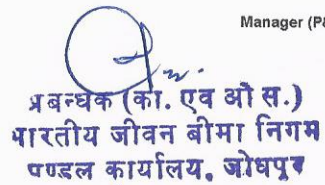 Manager (P&
प्रबन्धक (का. एव औ स.)
भारतीय जीवन बीमा निगम
मण्डल कार्यालय, जोधपुर